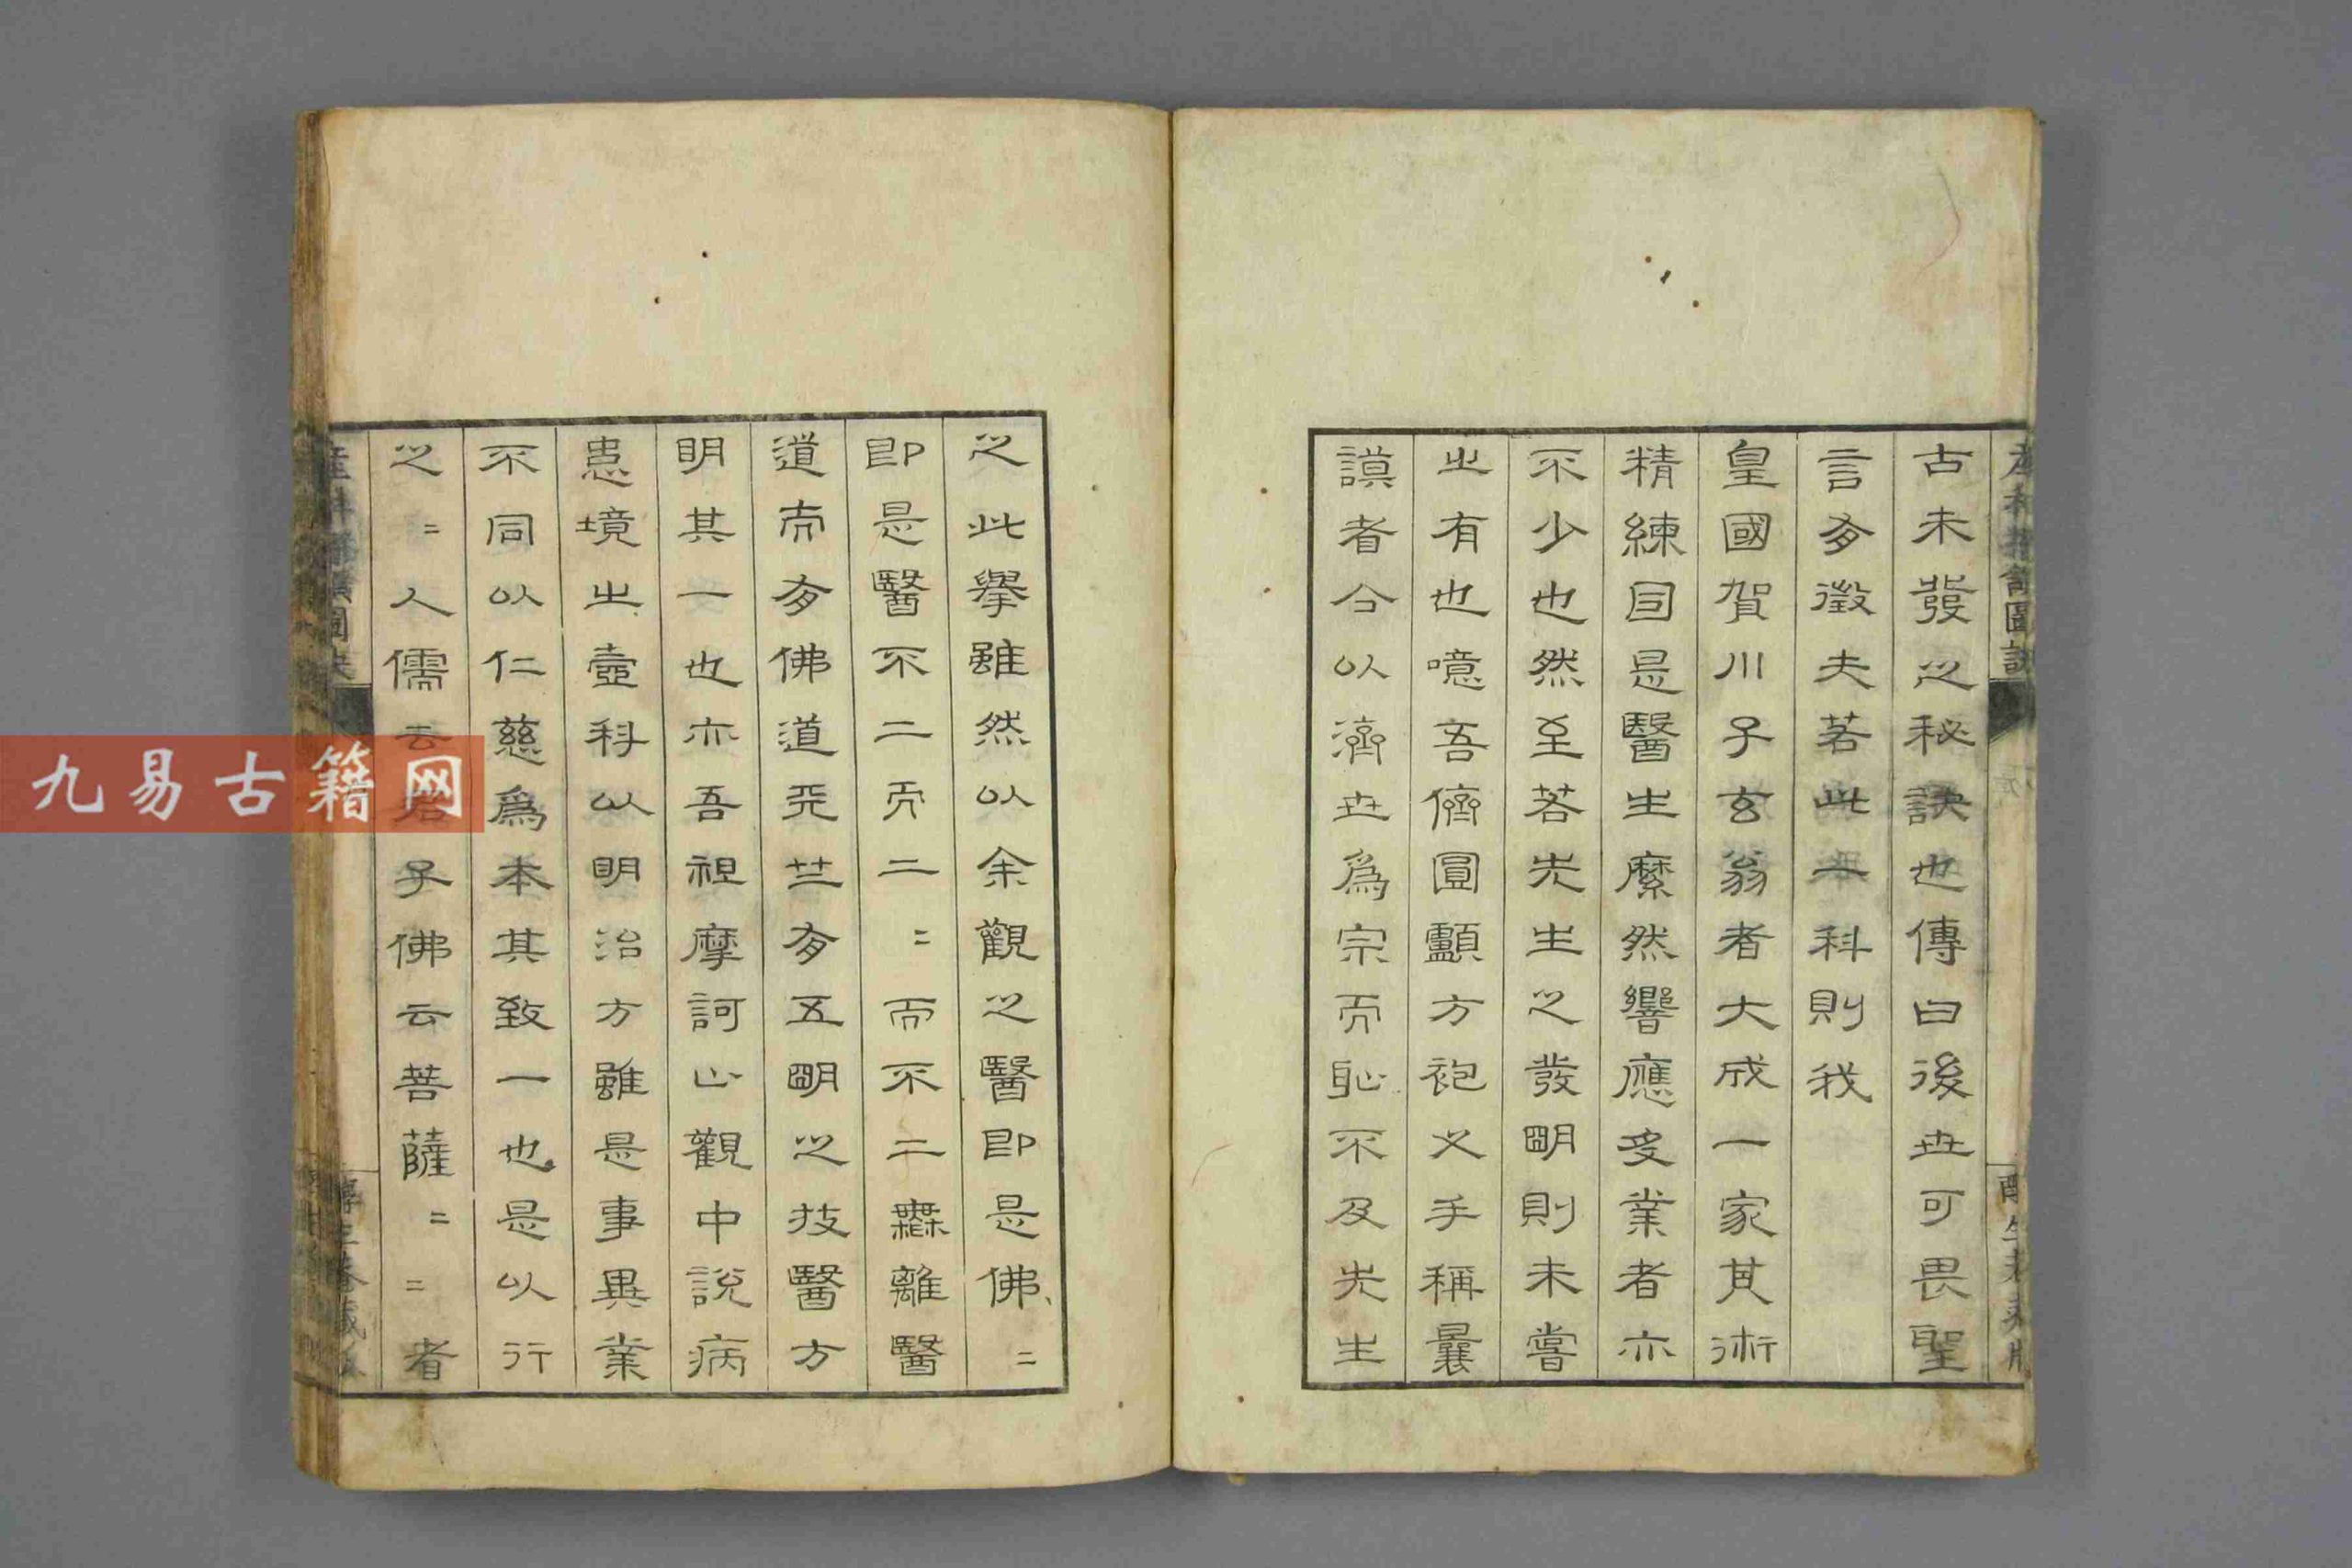 古未發之秘訣也傳曰後世可畏聖
言有徵夫若此
科則我
皇國賀川子玄翁者大成一家其術
精練因是醫生縻然響應受業者亦
不少也然至若先生之發明則未嘗
之有也噫吾儕圓顱方袍叉手稱曩
謨者今以濟世為宗而恥不及先生
之此擧雖然以余觀之醫即是佛〻
即是醫不二而二〻而不二無離醫
道而有佛道乎竺有五明之技醫方
明其一也亦吾祖摩訶止觀中說病
患境出壺科以明治方雖是事異業
不同以仁慈為本其致一也是以行
之〻人儒云君子佛云菩薩〻〻者
九易古籍网